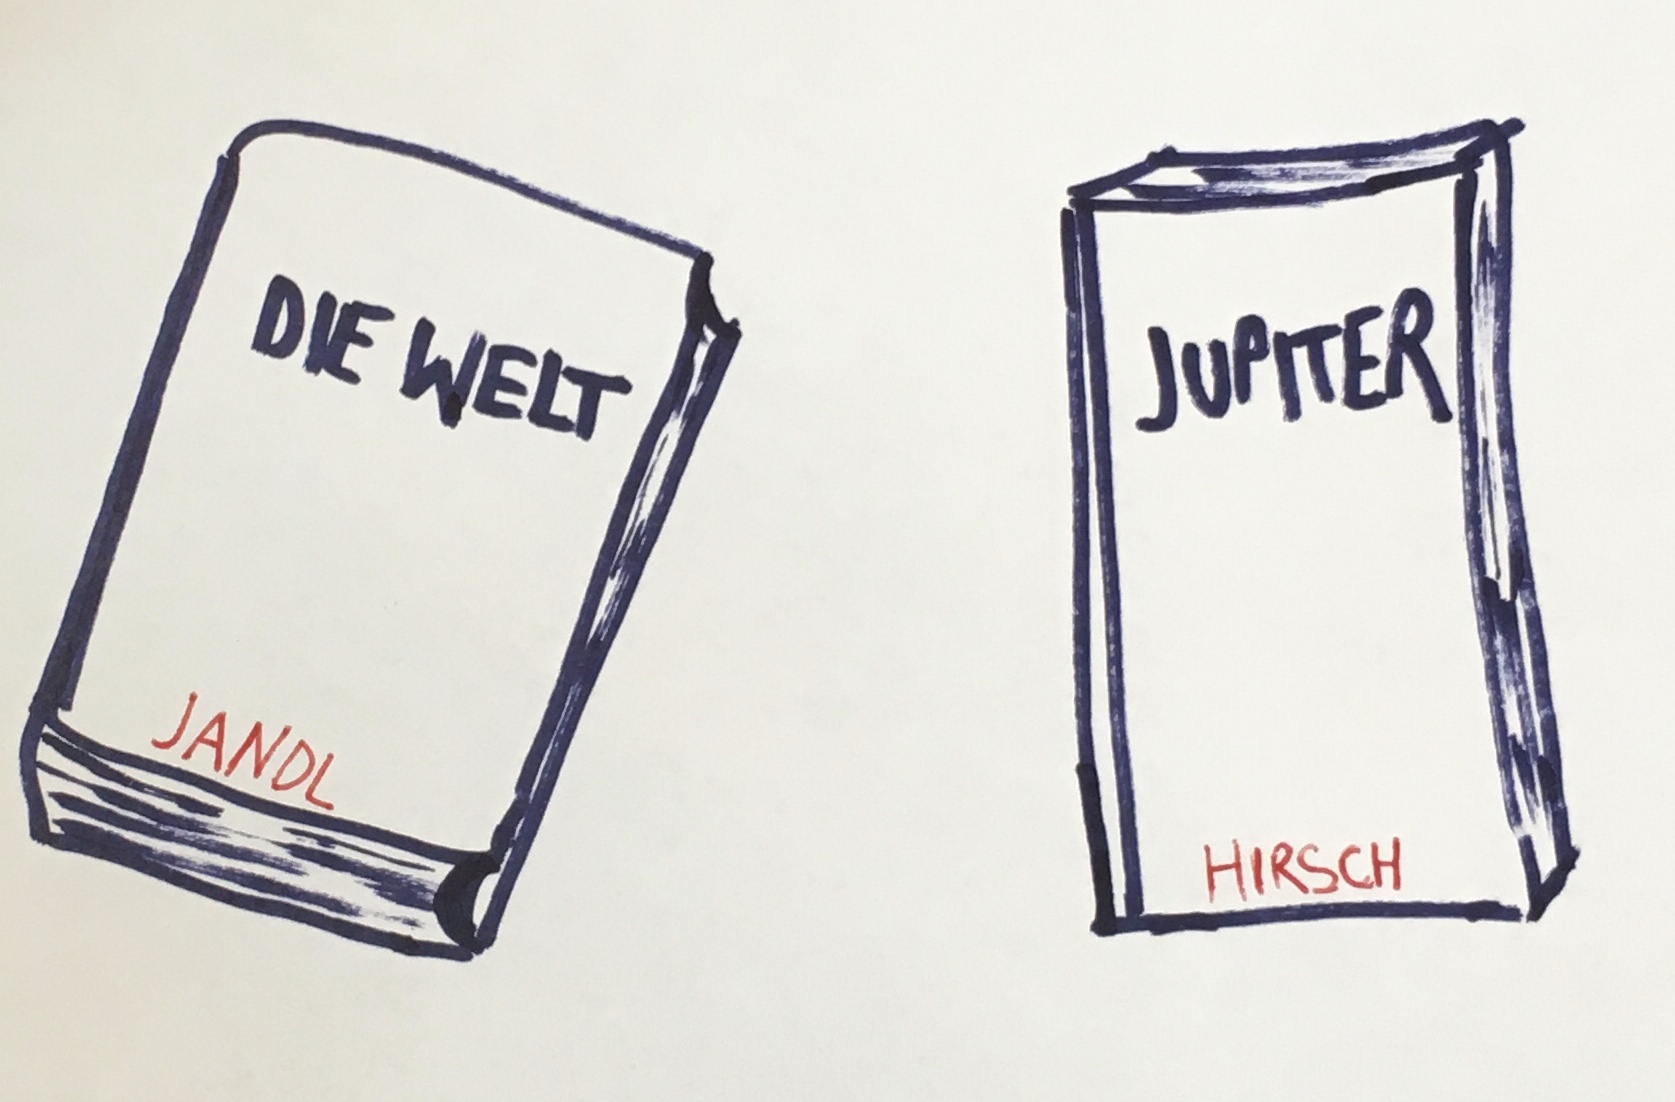 DIE WELT
JANDL
JUPITER
HIRSCH